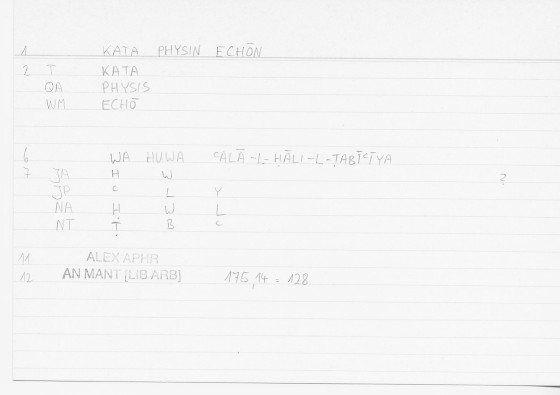 1 KATA PHYSIN ECHŌN
2 T KATA
QA PHYSIS
WM ECHŌ
6 WA HUWA ᶜALĀ-L-ḤĀLI-L-ṬABĪᶜĪYA
7 JA H W ?
JP ᶜ L Y
NA Ḥ W L
NT Ṭ B ᶜ
11 ALEX APHR
12 AN MANT [LIB ARB] 175,14 = 128